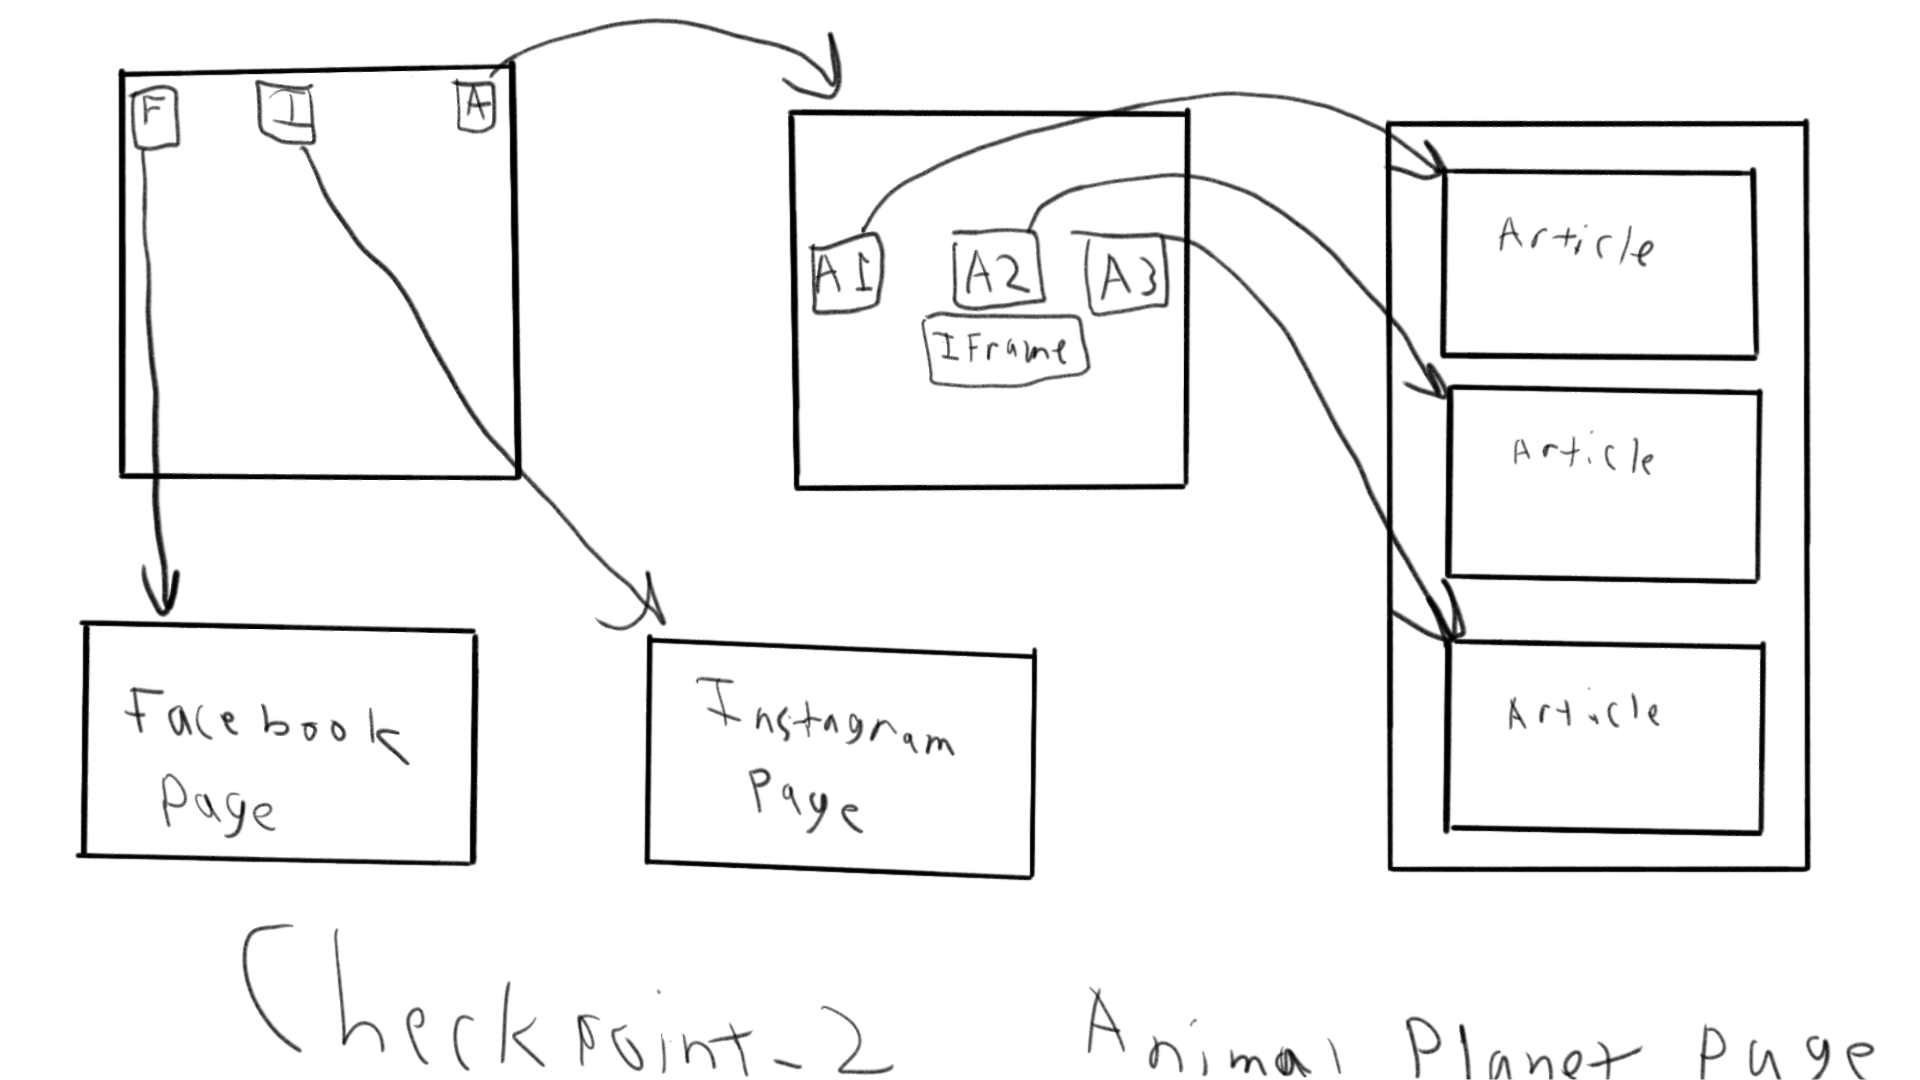 F I A
A1 A2 A3
IFrame
Article
Article
Article
Facebook
Page
Instagram
Page
Checkpoint-2 Animal Planet Page